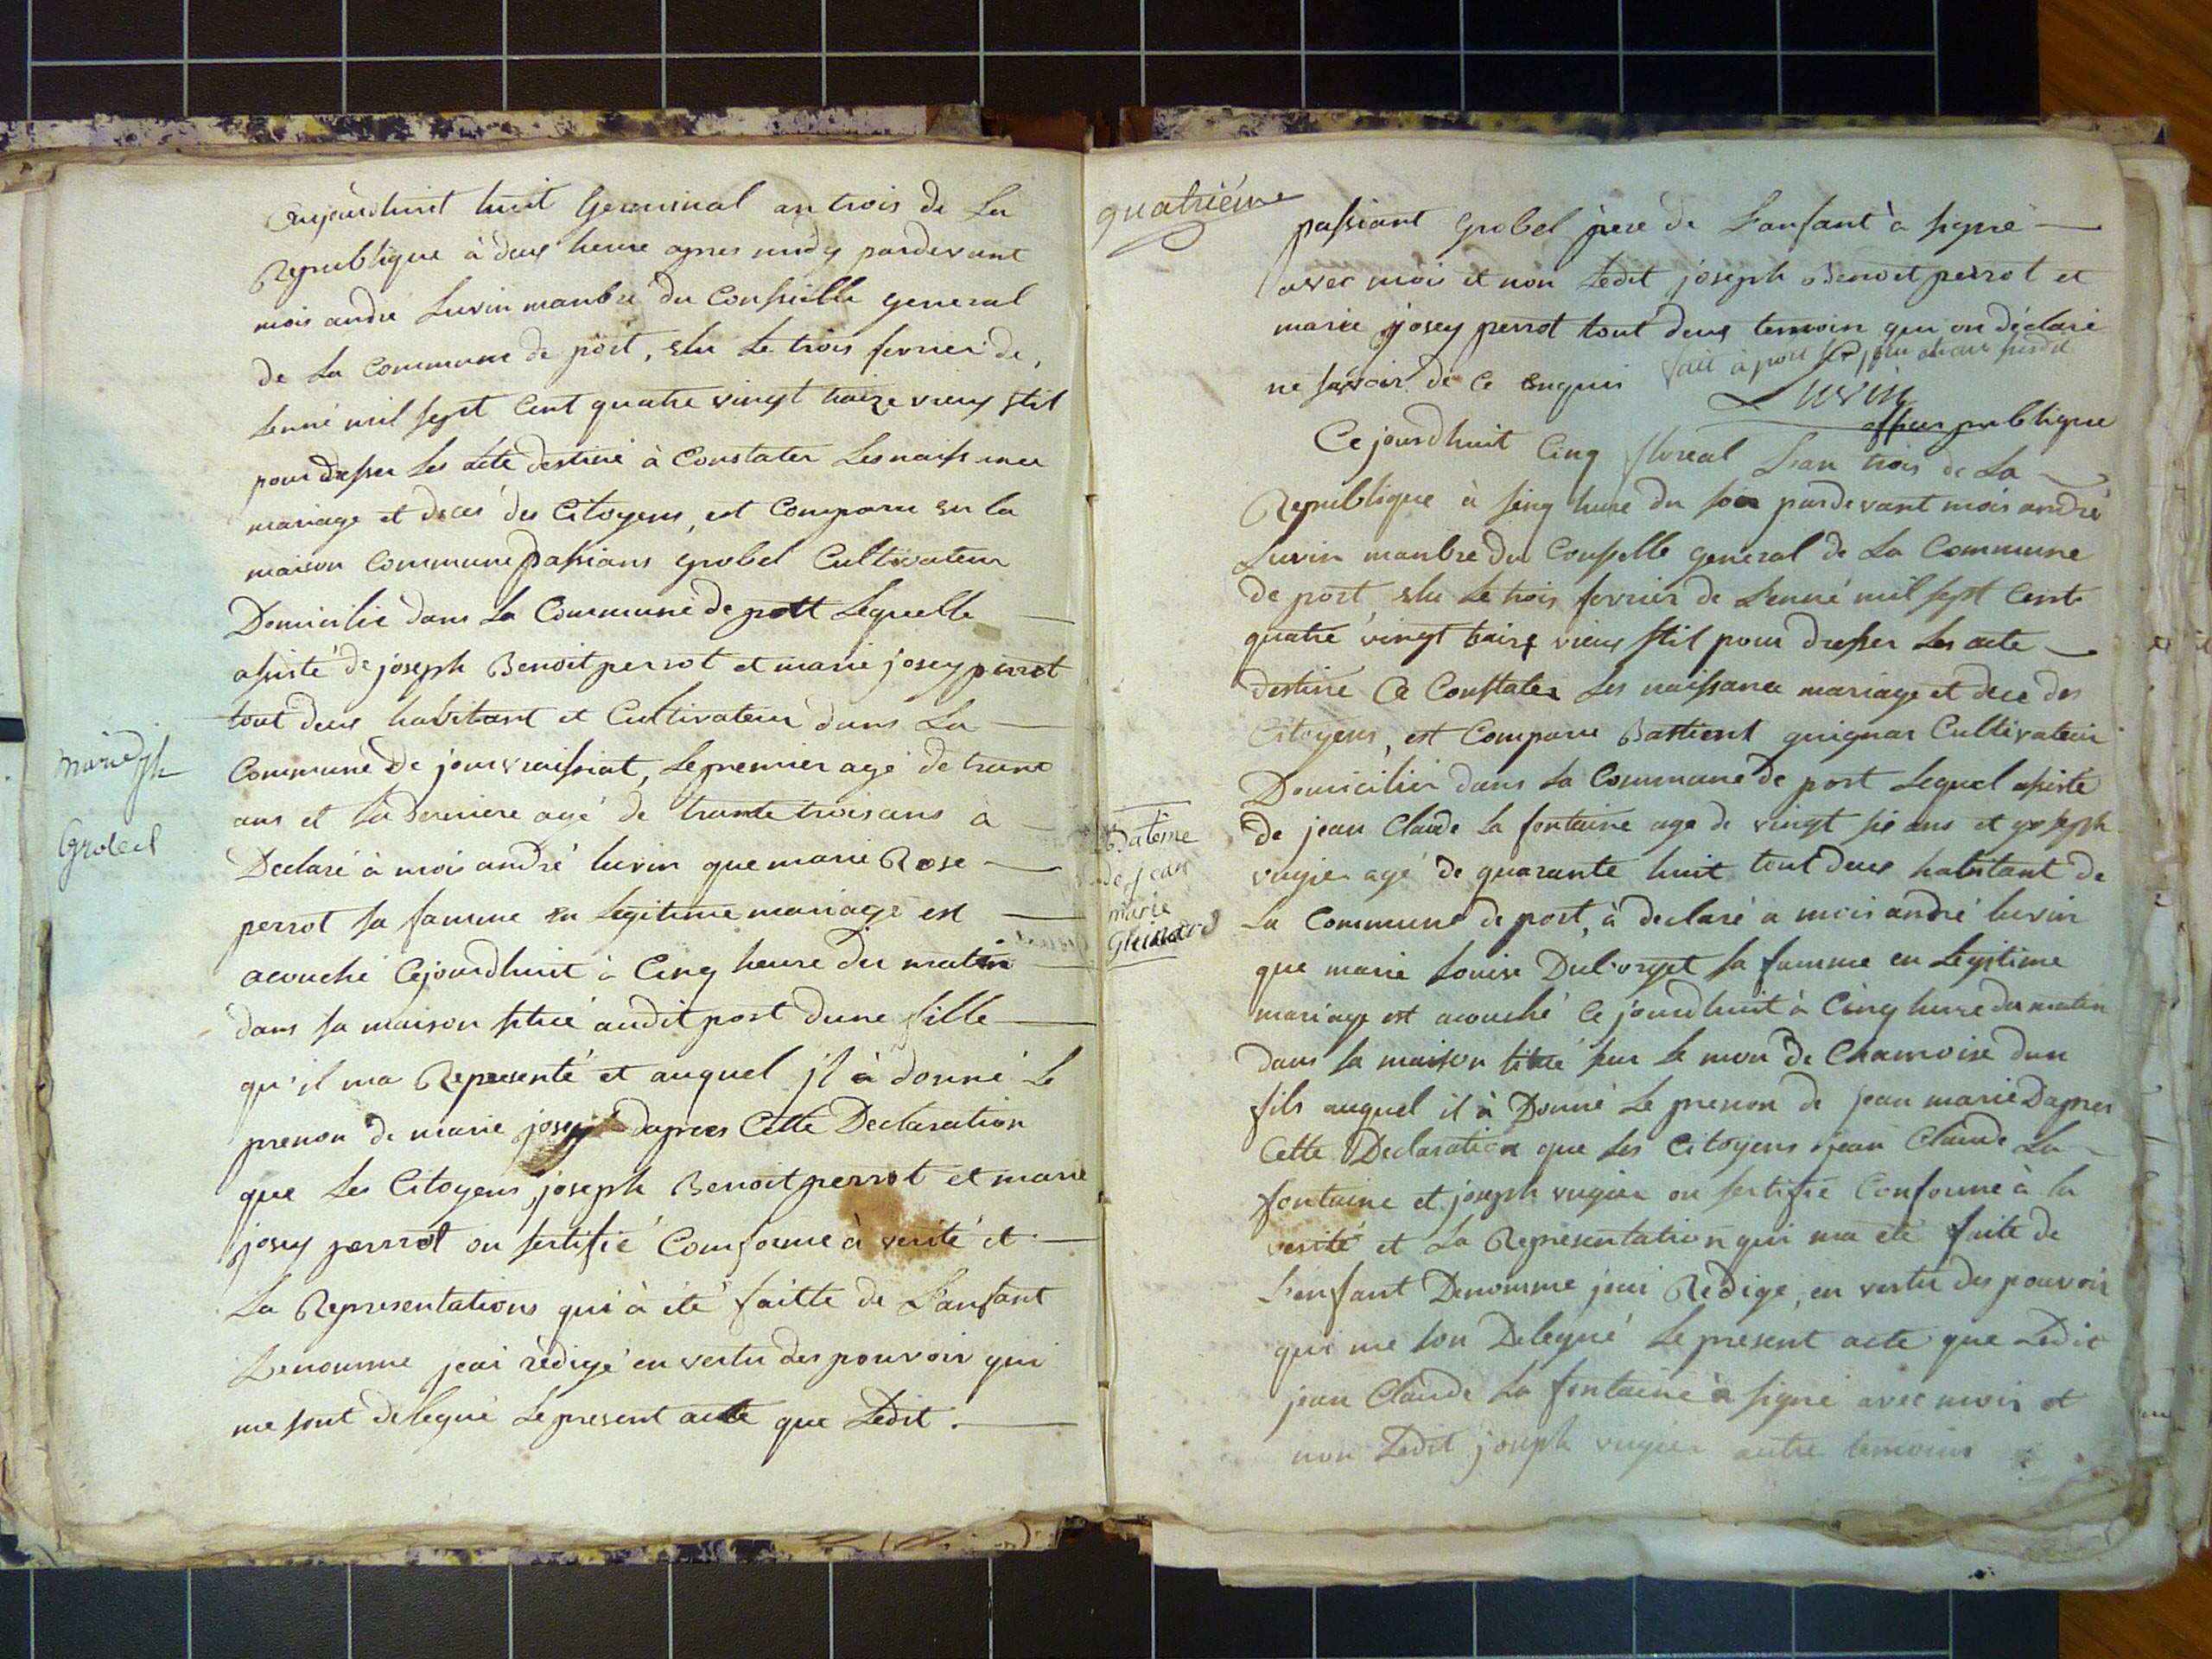 aujourdhuit huit Germinal an trois de La
Republique à deux heure apres midy pardevant
mois andré Luvin manbre du Conseille general
de La Commune de port, elu Le trois fevrier de
Lenné mil sept Cent quatre vingt traize vieux stil
pour dresser Les acte destiné à Constater Les naissance
mariage et deces des Citoyens, est Comparu en la
maison Commune passians grobel Cultivateur
Domicilié dans La Commune de port Lequelle
asisté de joseph Benoit perrot et marie josey perrot
tout deux habitant et Cultivateur dans La
Commune de jouvraissiat, Le premier agé de trante
ans et La derniere agé de trante trois ans à
Declaré à mois andré luvin que marie Rose
perrot sa famme en Legitime mariage est
acouché Cejourdhuit à Cinq heure du matin
dans sa maison sitúé audit port dune fille
qu'il ma Representé et auquel jl à donné Le
prenon de marie josey dapres Cette Declaration
que Les Citoyens joseph Benoit perrot et marie
josey perrot on sertifié Comforme à verité et
La Representations qui à été faitte de L'anfant
Denomme jeai rèdigé en vertu des pouvoir qui
me sont delegué Le present acte que Ledit
marie jph
Grobel
quatriéme
passiant grobel père de L'anfant à signé
avec mois et non Ledit joseph Benoit perrot et
marie josey perrot tout deux temoin qui on déclaré
ne savoir de ce enquis fait à port les jour et an susdit
Luvin
officier publique
Ce jourdhuit Cinq floreal Lan trois de La
Republique à sinq hure du soir pardevant mois andré
Luvin manbre du Conselle general de La Commune
de port, elu Le trois fevrier de Lenné mil sept Cent
quatre vingt traize vieux stil pour dresser Les acte
destiné à Constater Les naissance mariage et dece des
Citoyens, est Comparu Bastient guignar Cultivateur
Domicilier dans La Commune de port Lequel asisté
de jean Claude La fontaine age de vingt sis ans et joseph
vugier agé de quarante huit tout deux habitant de
La Commune de port, à declaré a mois andré luvin
que marie Louise sa famme en Legitime
mariage est acouché Ce jourdhuit à Cinq hure du matin
dans sa maison sitúé sur Le mon de Chamoise dun
fils auquel il à Donné Le prenon de jean marie Dapres
Cette Declaration que Les Citoyens jean Claude La
fontaine et joseph vugier on sertifié Conforme à la
verité et La Representation qui ma eté faite de
L'enfant Denomme jeai Rèdigé, en vertu des pouvoir
qui me son Delegué Le present acte que Ledit
jean Claude La fontaine à signé avec mois et
non Ledit joseph vugier autre temoins
Batéme
de jean
marie
Guinard